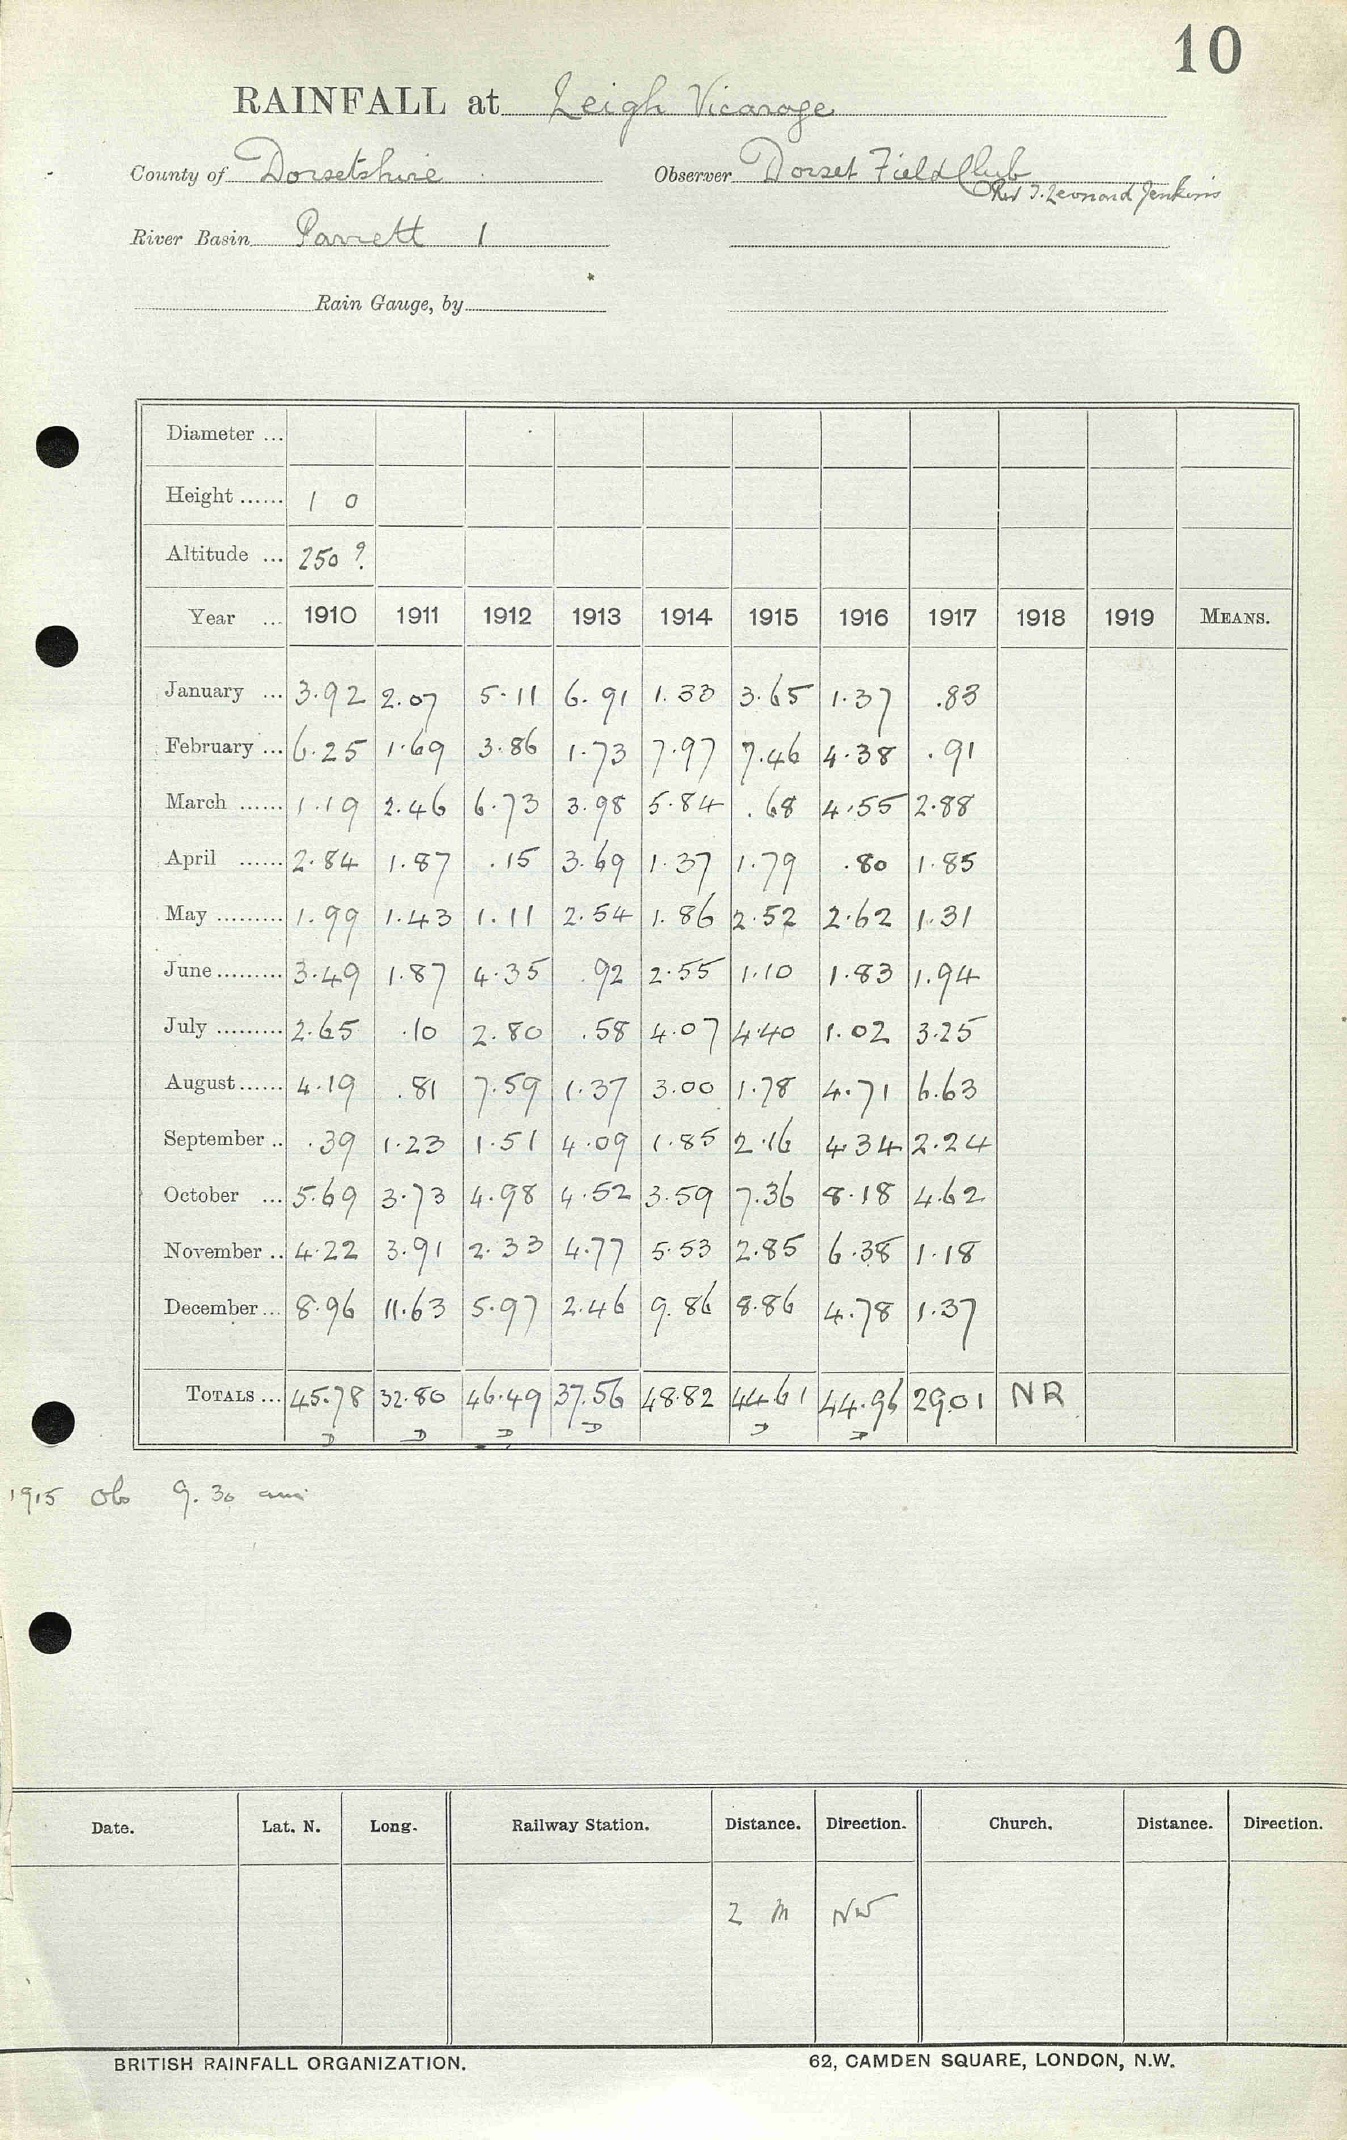 10
RAINFALL at Leigh Vicarage
County of Dorsetshire Observer Dorset Field Club
Rev J. Leonard Jenkins
River Basin Parrett 1
Rain Gauge, by
Diameter ...
Height ...... 1 0
Altitude ... 250 ?
Year ... 1910 1911 1912 1913 1914 1915 1916 1917 1918 1919 MEANS.
January ... 3.92 2.07 5.11 6.91 1.33 3.65 1.37 .83
February ... 6.25 1.69 3.86 1.73 7.97 7.46 4.38 .91
March ...... 1.19 2.46 6.73 3.98 5.84 .68 4.55 2.88
April ...... 2.84 1.87 .15 3.69 1.37 1.79 .80 1.85
May ......... 1.99 1.43 1.11 2.54 1.86 2.52 2.62 1.31
June ......... 3.49 1.87 4.35 .92 2.55 1.10 1.83 1.94
July ......... 2.65 .10 2.80 .58 4.07 4.40 1.02 3.25
August ...... 4.19 .81 7.59 1.37 3.00 1.78 4.71 6.63
September .. .39 1.23 1.51 4.09 1.85 2.16 4.34 2.24
October ... 5.69 3.73 4.98 4.52 3.59 7.36 8.18 4.62
November .. 4.22 3.91 2.33 4.77 5.53 2.85 6.38 1.18
December ... 8.96 11.63 5.97 2.46 9.86 8.86 4.78 1.37
TOTALS ... 45.78 32.80 46.49 37.56 48.82 44.61 44.96 29.01 NR
D D D D D D
1915 Obs 9.30 am
Date. Lat. N. Long. Railway Station. Distance. Direction. Church. Distance. Direction.
2 m NW
BRITISH RAINFALL ORGANIZATION. 62, CAMDEN SQUARE, LONDON, N.W.